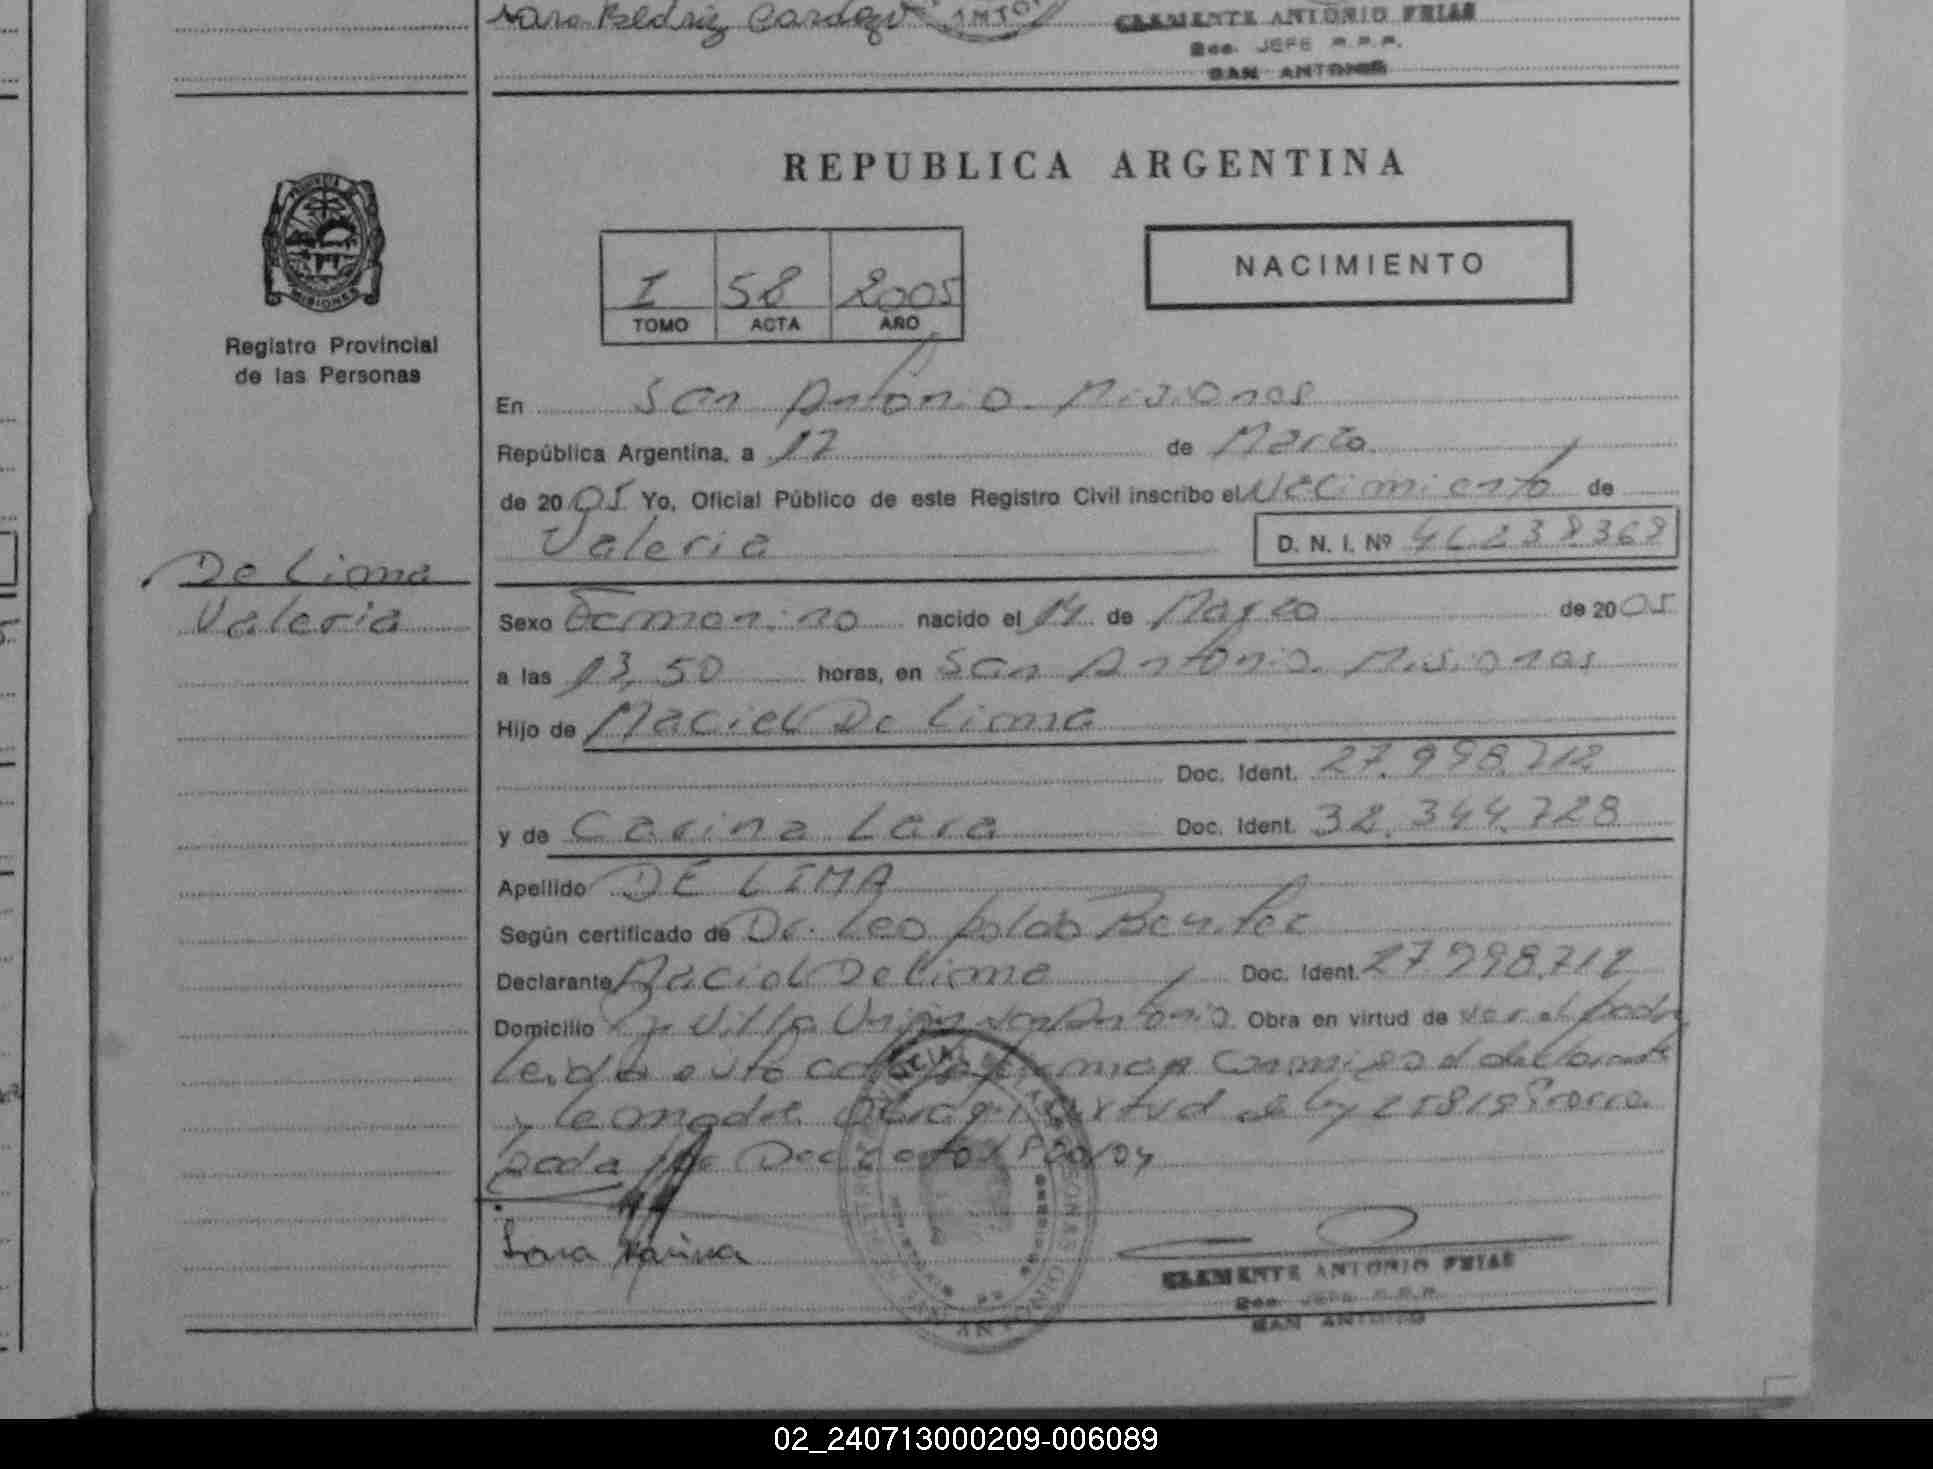 CLEMENTE ANTONIO FRIAS
JEFE R.P.P.
SAN ANTONIO
REPUBLICA ARGENTINA
PROVINCIA DE
MISIONES
Registro Provincial
de las Personas
I 58 2005
TOMO ACTA AÑO
NACIMIENTO
En San Antonio Misiones
República Argentina, a 17 de Marzo
de 2005 Yo, Oficial Público de este Registro Civil inscribo el Nacimiento de
Valeria D. N. I. Nº 46.238.368
De Lima
Valeria
Sexo Femenino nacido el 14 de Marzo de 2005
a las 13,50 horas, en San Antonio Misiones
Hijo de Maciel De Lima
Doc. Ident. 27.998.712
y de Carina Lara Doc. Ident. 32.344.728
Apellido DE LIMA
Según certificado de Dr. Leopoldo Benitez
Declarante Maciel De Lima Doc. Ident. 27.998.712
Domicilio Villa Union San Antonio Obra en virtud de ser el padre
Leida acta firman conmigo el declarante
y la madre virtud de ley 25819
Decreto
Lara Karina
CLEMENTE ANTONIO FRIAS
JEFE R.P.P.
SAN ANTONIO
02_240713000209-006089